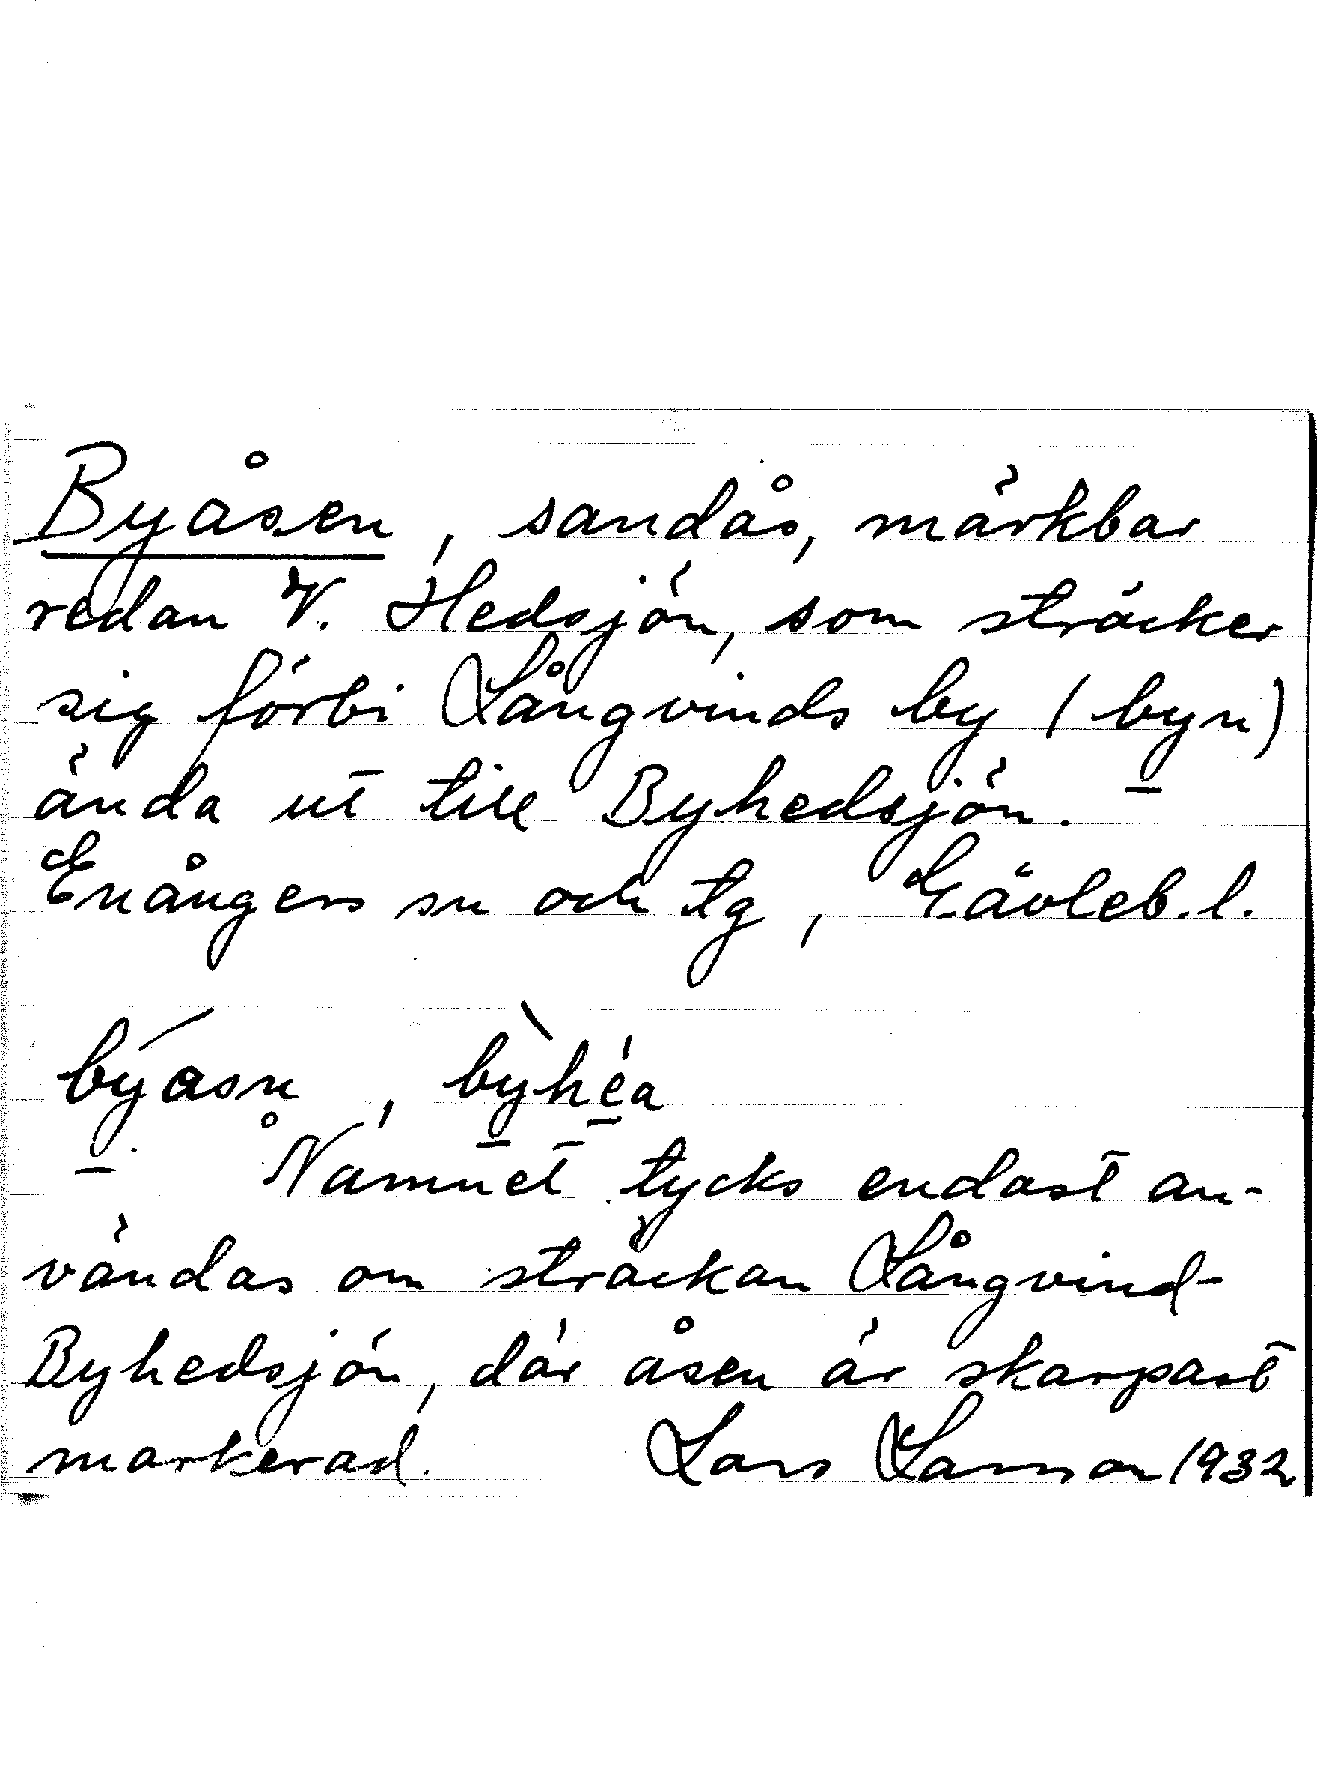 Byåsen, sandås, märkbar
redan V. Hedsjön, som sträcker
sig förbi Långvinds by (byn)
ända ut till Byhedsjön.
Enångers sn och tg, Gävleb. l.
býasn, bỳhéa
Namnet tycks endast an-
vändas om sträckan Långvind-
Byhedsjön, där åsen är skarpast
markerad. Lars Larsson 1932